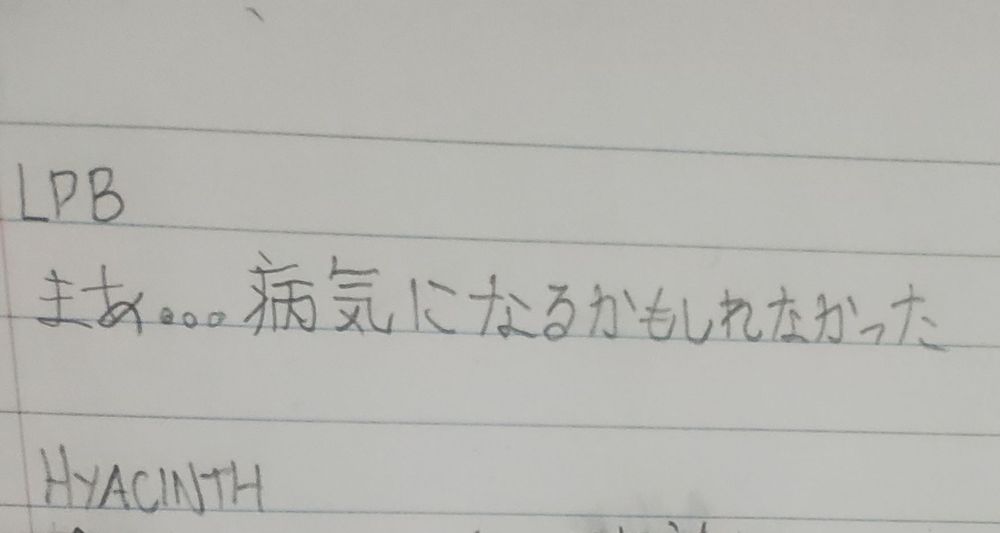 LPB
まあ。。。病気になるかもしれなかった
HYACINTH